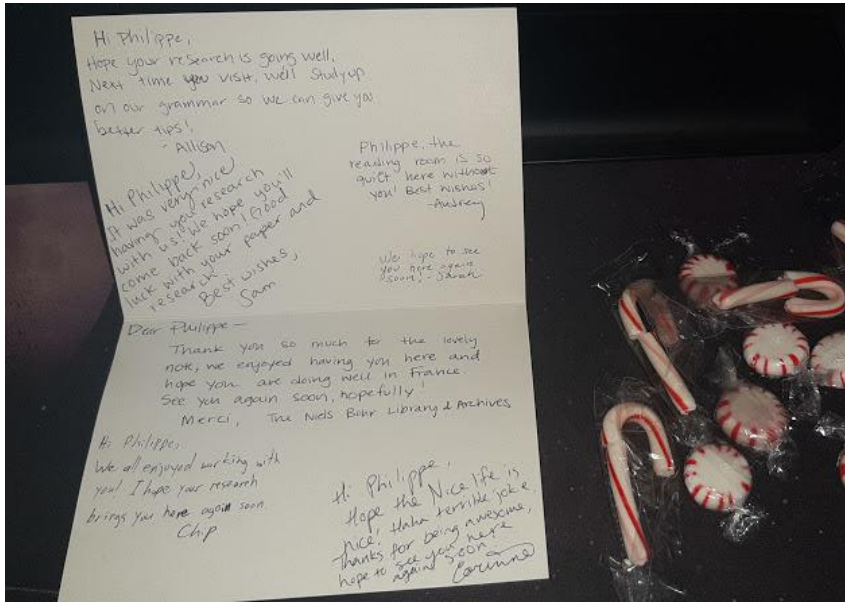 Hi Philippe,
Hope your research is going well.
Next time you visit, we'll study up
on our grammar so we can give you
better tips!
- Allison
Philippe, the
reading room is so
quiet here without
you! Best wishes!
-Audrey
Hi Philippe,
It was very nice
having you research
with us! We hope you'll
come back soon! Good
luck with your paper and
research.
Best wishes,
Sam
We hope to see
you here again
soon, - Sarah
Dear Philippe —
Thank you so much for the lovely
note, we enjoyed having you here and
hope you are doing well in France.
See you again soon, hopefully!
Merci, The Niels Bohr Library & Archives
Hi Philippe,
We all enjoyed working with
you! I hope your research
brings you here again soon.
Chip
Hi Philippe,
Hope the Nice life is
nice! Haha terrible joke.
Thanks for being awesome,
hope to see you here
again soon -
Corinne